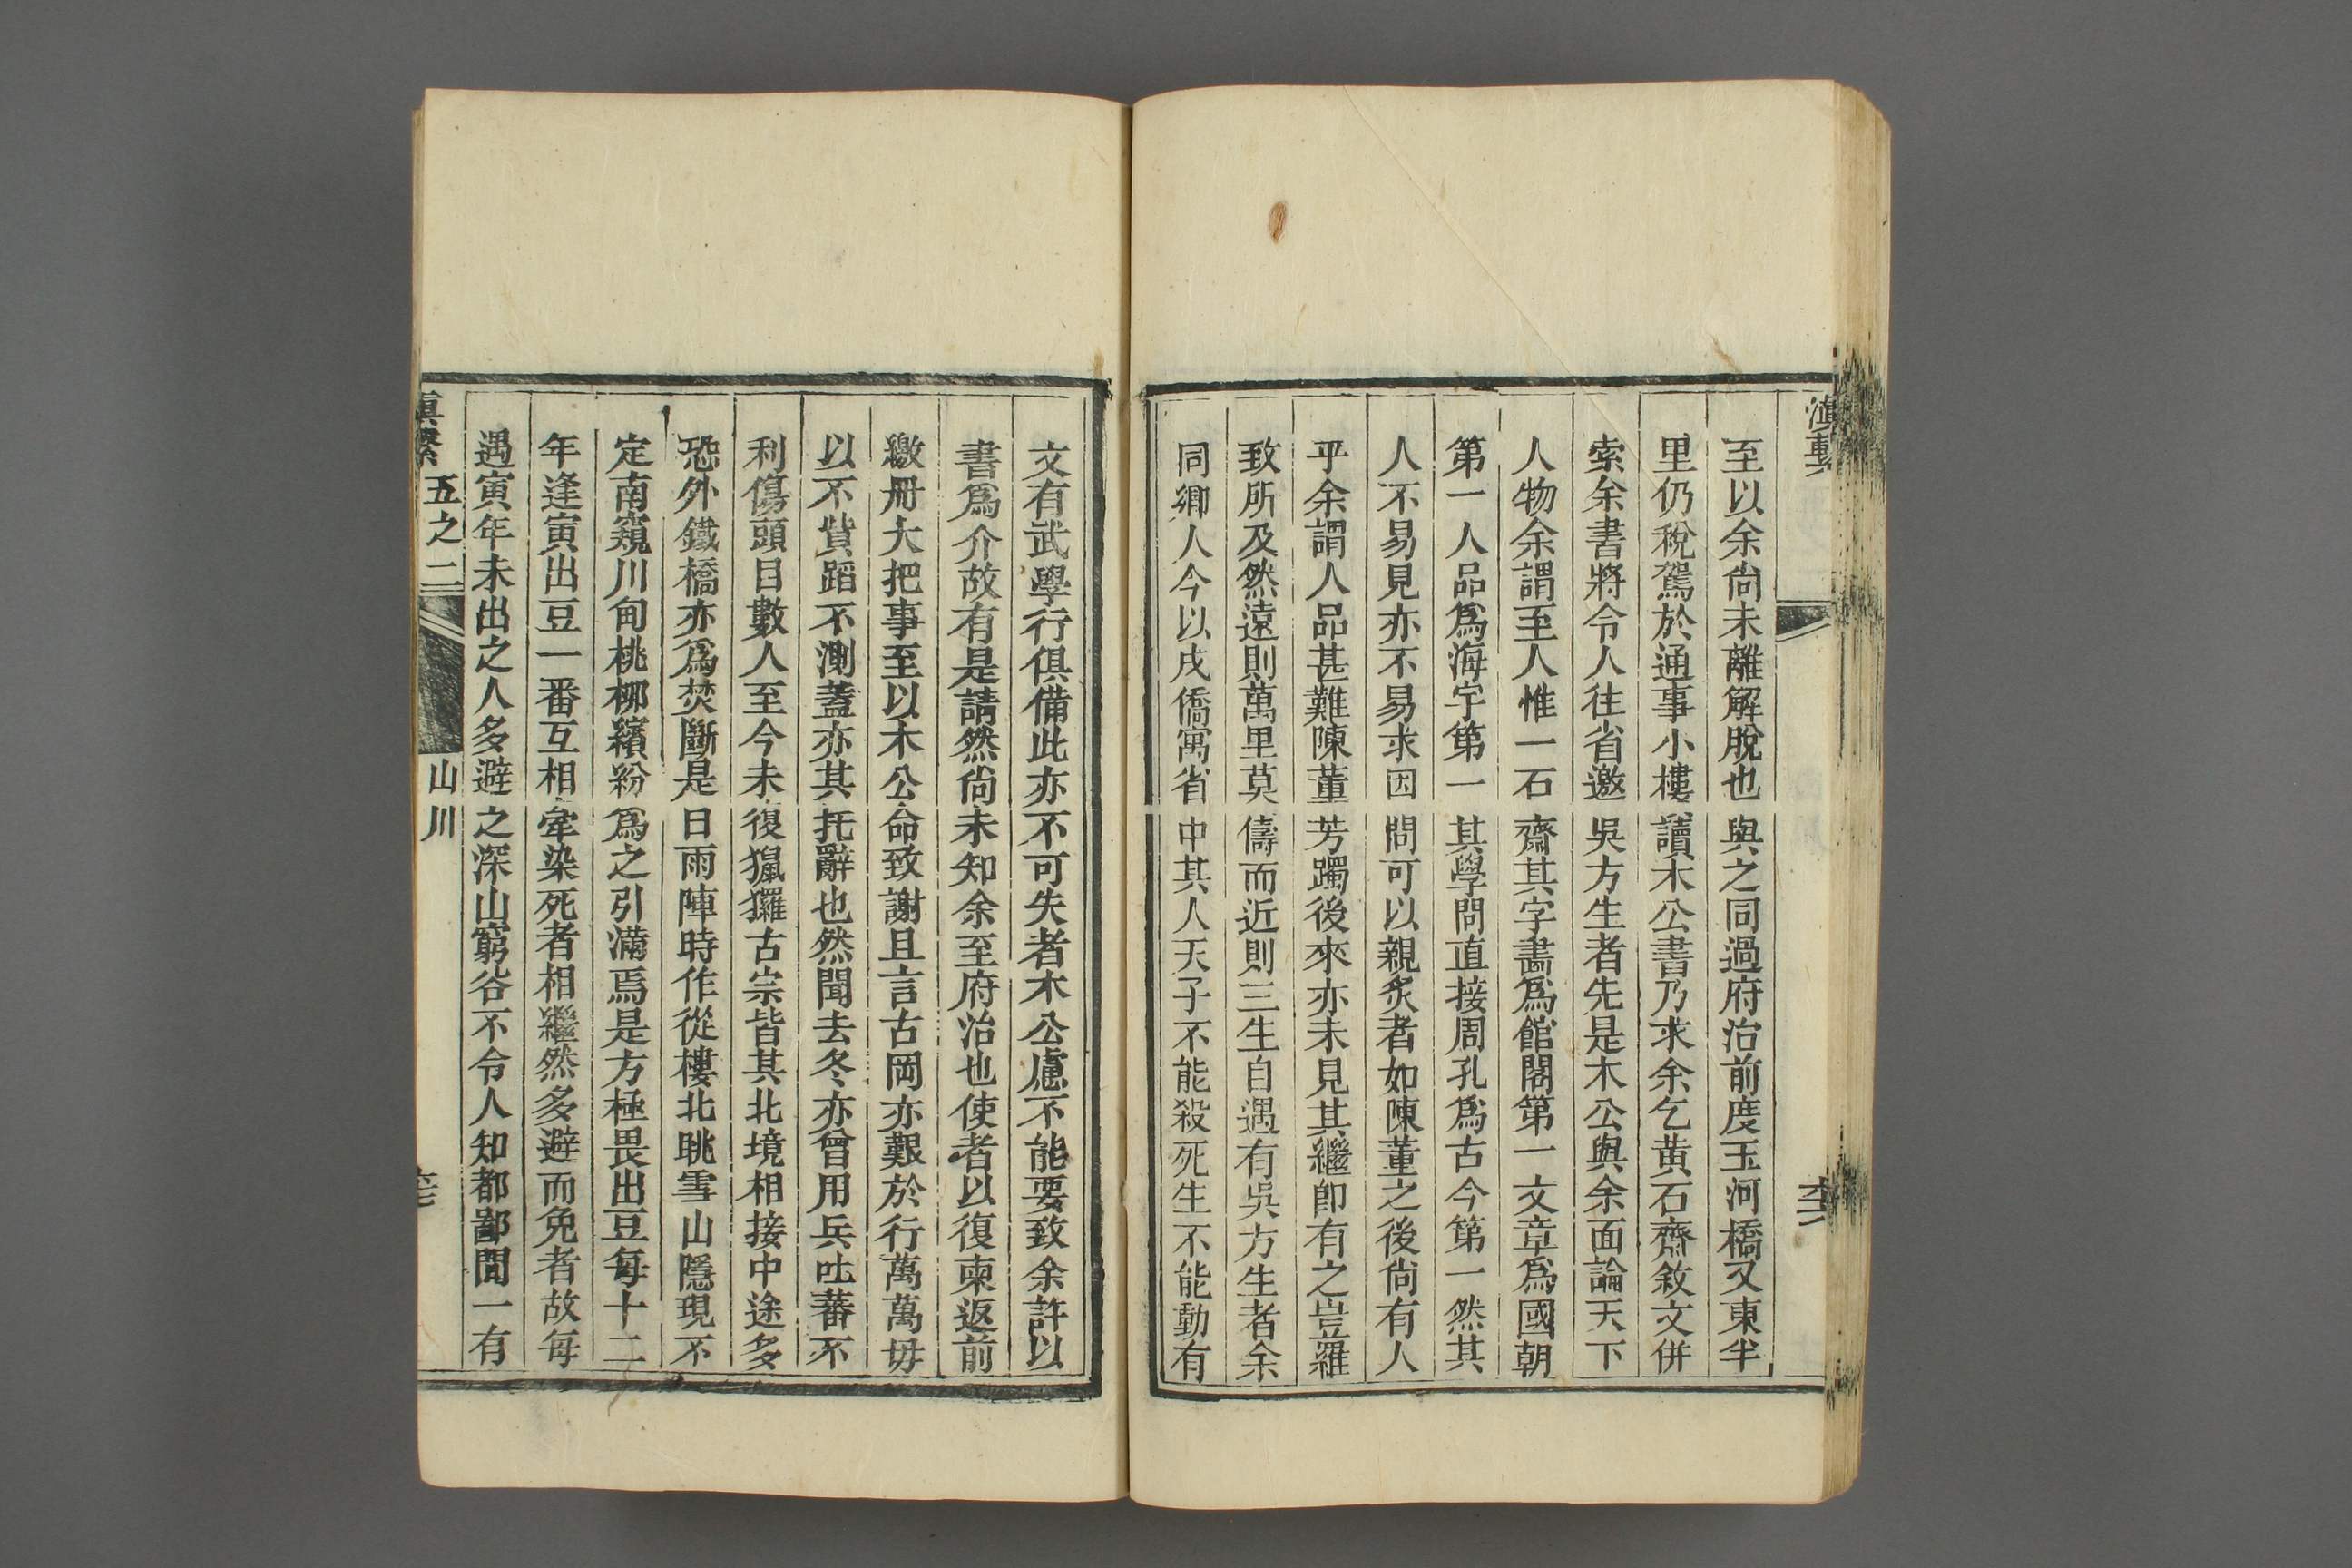 滇繫
至以余尙未離解脫也與之同過府治前度玉河橋又東半
里仍稅駕於通事小樓讀木公書乃求余乞黃石齋敘文併
索余書將令人往省邀吳方生者先是木公與余面論天下
人物余謂至人惟一石齋其字畵爲館閣第一文章爲國朝
第一人品爲海宇第一其學問直接周孔爲古今第一然其
人不易見亦不易求因問可以親炙者如陳董之後尙有人
乎余謂人品甚難陳董芳躅後來亦未見其繼卽有之豈羅
致所及然遠則萬里莫儔而近則三生自遇有吳方生者余
同鄉人今以戍僑寓省中其人天子不能殺死生不能動有
文有武學行俱備此亦不可失者木公慮不能要致余許以
書爲介故有是請然尙未知余至府治也使者以復柬返前
繳册大把事至以木公命致謝且言古岡亦艱於行萬萬毋
以不貲蹈不測蓋亦其托辭也然聞去冬亦曾用兵吐蕃不
利傷頭目數人至今未復猓玀古宗皆其北境相接中途多
恐外鐵橋亦爲焚斷是日雨陣時作從樓北眺雪山隱現不
定南窺川甸桃柳繽紛爲之引滿焉是方極畏出豆每十二
年逢寅出豆一番互相牽染死者相繼然多避而免者故每
遇寅年未出之人多避之深山窮谷不令人知都鄙間一有
滇繫 五之二 山川